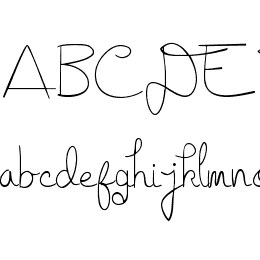 ABCDE
abcdefghijklmno